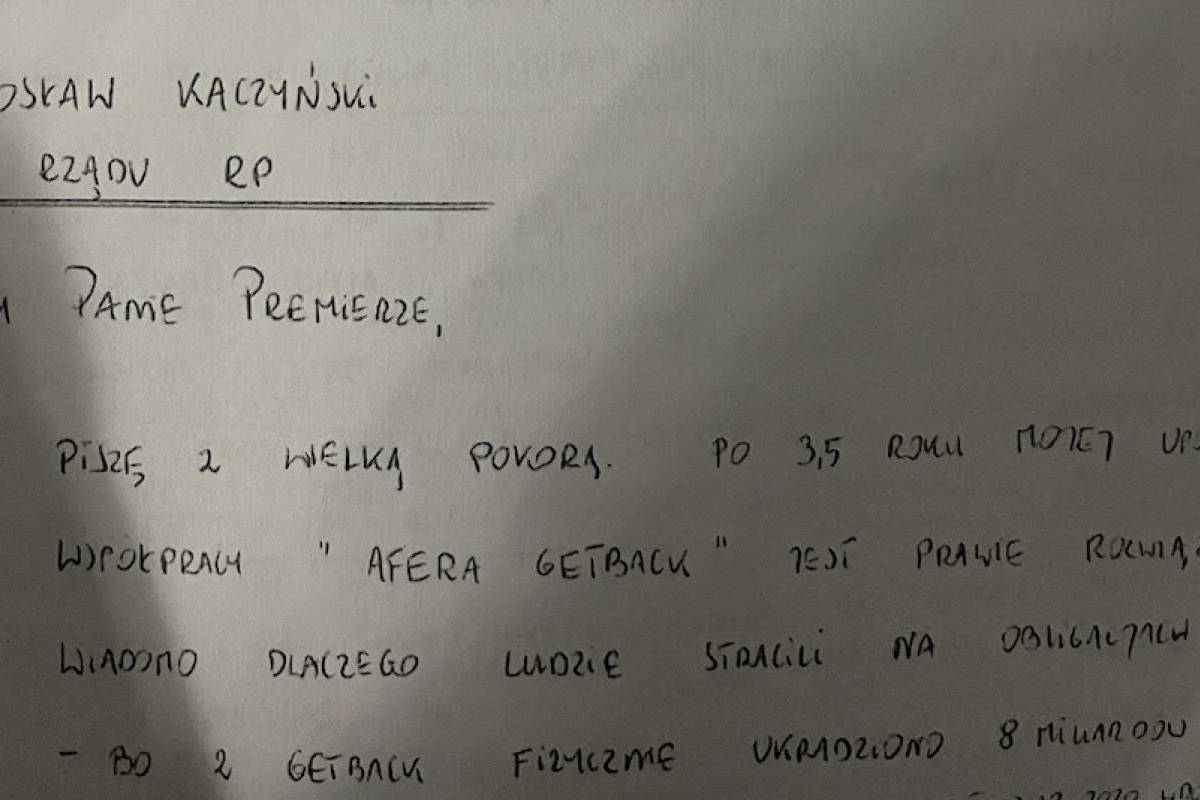 OSŁAW KACZYŃSKI
RZĄDU RP
PANIE PREMIERZE,
PISZĘ Z WIELKĄ POKORĄ. PO 3,5 ROKU MOJEJ
WSPÓŁPRACY "AFERA GETBACK" JEST PRAWIE ROZWIĄ
WIADOMO DLACZEGO LUDZIE STRACILI NA OBLIGACJACH
- BO Z GETBACK FIZYCZNIE UKRADZIONO 8 MILIARDÓW
2020